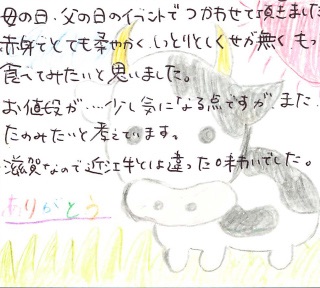 母の日・父の日のイベントでつかわせて頂きました
赤身でとても柔やかく、しっとりとしくせが無く、もっ
食べてみたいと思いました。
お値段が…少し気になる点ですが、また、
たのみたいと考えています。
滋賀なので近江牛とは違った味わいでした。
ありがとう